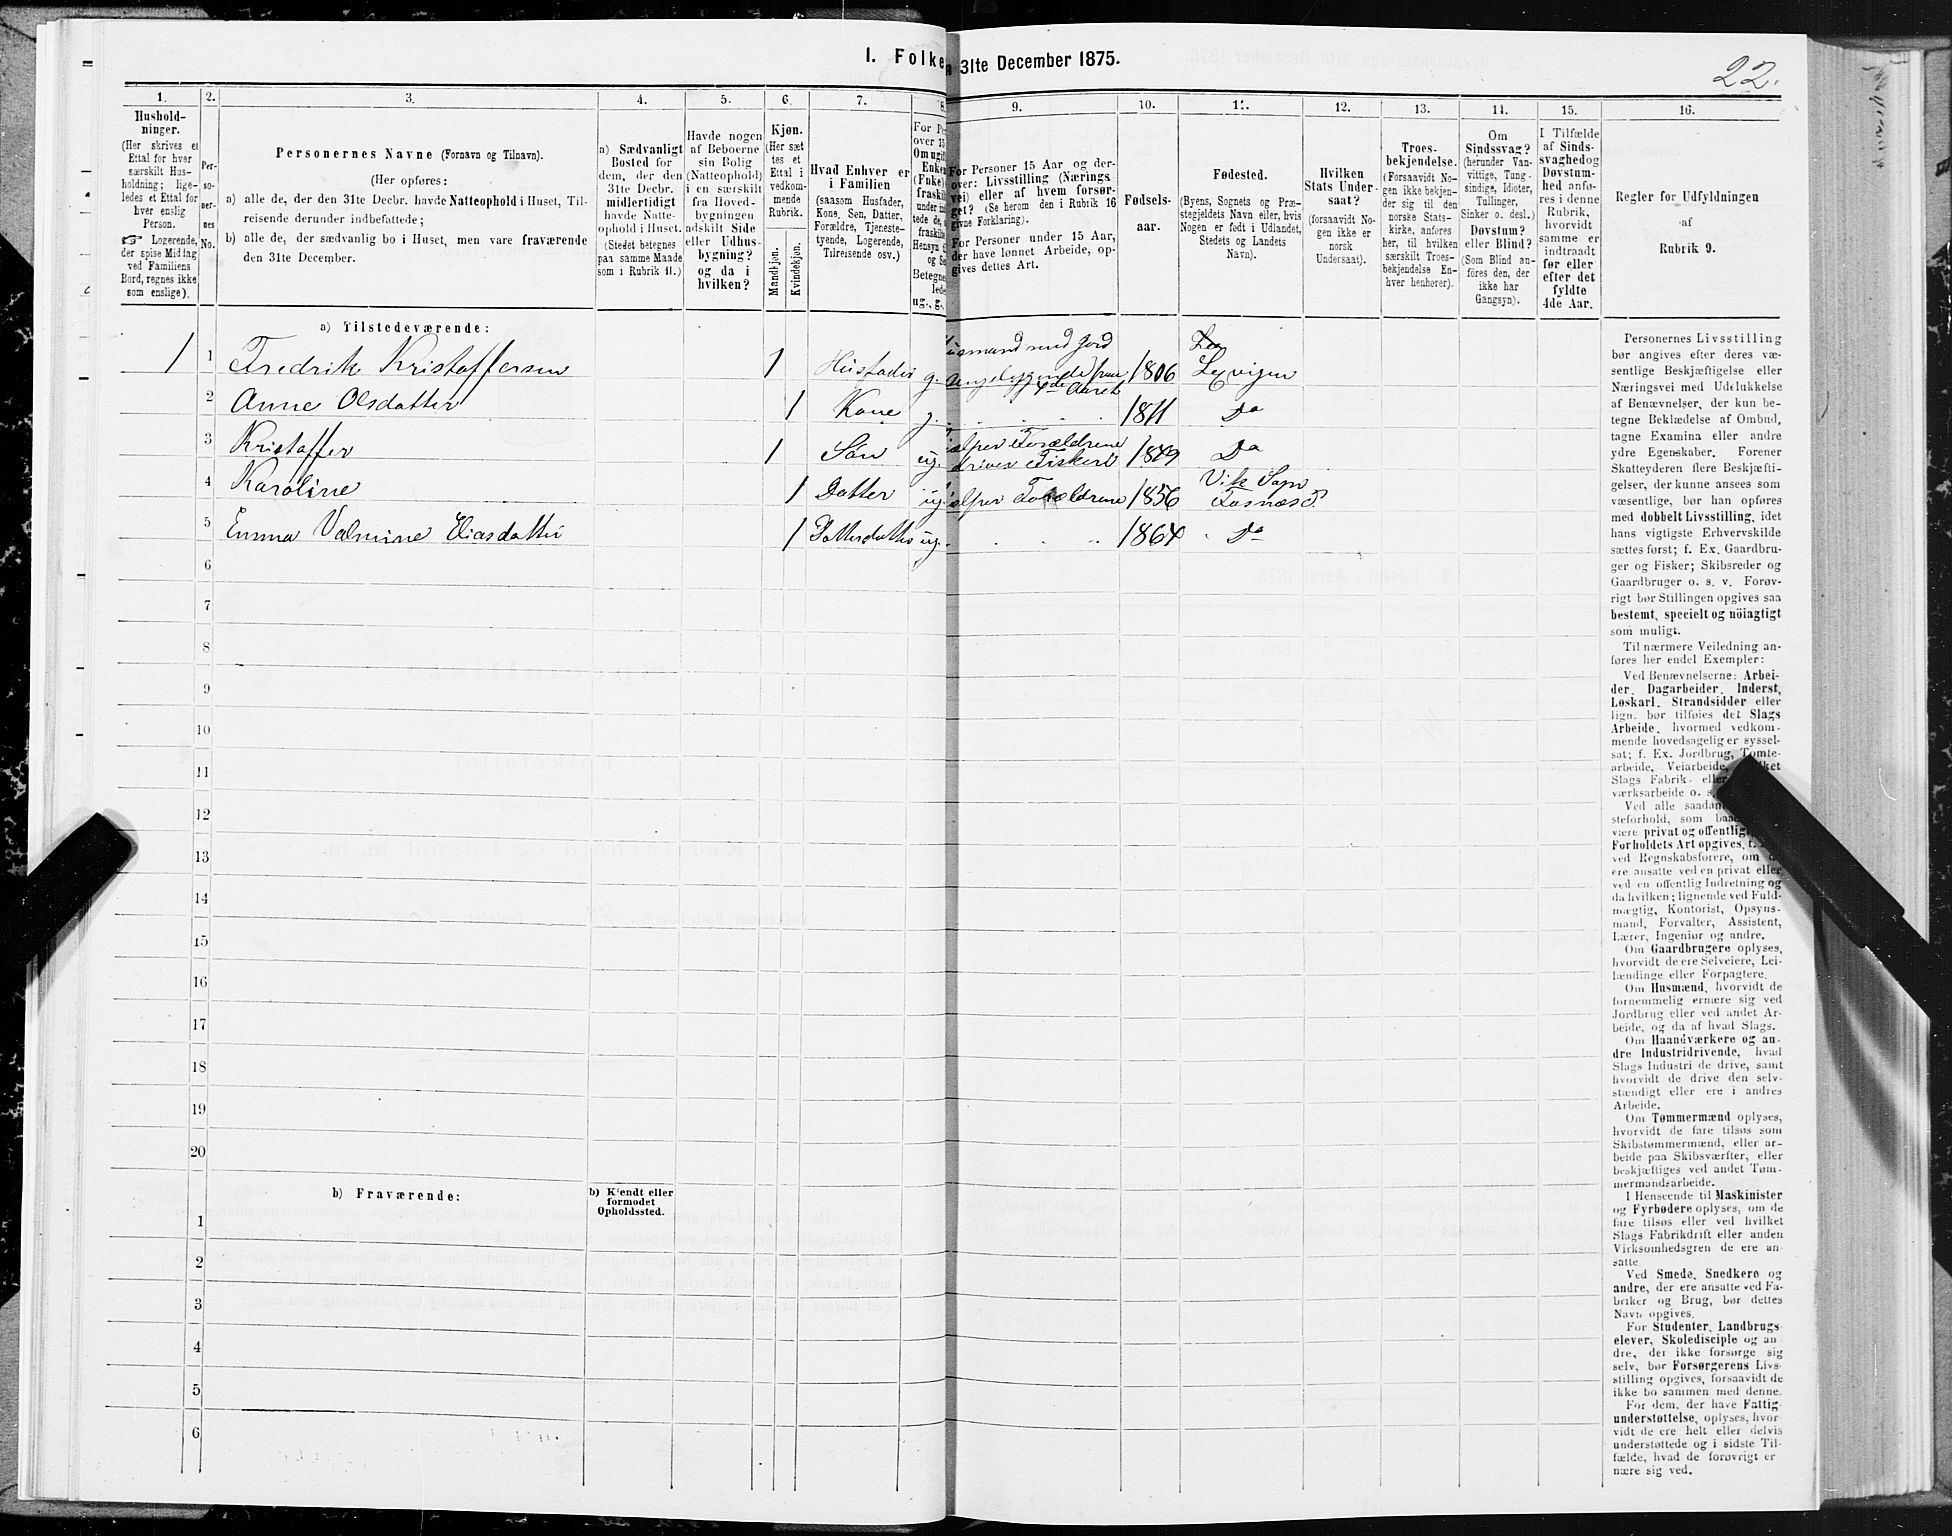 I. Folke n 31te December 1875.
22.
1. 2. 3. 4. 5. 6. 7. 8. 9. 10. 11. 12. 13. 14. 15. 16.
Hushold-
ninger.
(Her skrives et
Ettal for hver
særskilt Hus-
holdning; lige-
ledes et Ettal for
hver enslig
Person.
☞ Logerende,
der spise Middag
ved Familiens
Bord, regnes ikke
som enslige).
Per-
so-
ner-
nes
No.
Personernes Navne (Fornavn og Tilnavn).
(Her opføres:
a) alle de, der den 31te Decbr. havde Natteophold i Huset, Til-
reisende derunder indbefattede;
b) alle de, der sædvanlig bo i Huset, men vare fraværende
den 31te December.
a) Sædvanligt
Bosted for
dem, der den
31te Decbr.
midlertidigt
havde Natte-
ophold i Huset.
(Stedet betegnes
paa samme Maade
som i Rubrik 11.)
Havde nogen
af Beboerne
sin Bolig
(Natteophold)
i en særskilt
fra Hoved-
bygningen
adskilt Side
eller Udhus-
bygning?
og da i
hvilken?
Kjøn.
(Her sæt
tes et
Ettal i
vedkom-
mende
Rubrik.
Mandkjøn.
Kvindekjøn.
Hvad Enhver er
i Familien
(saasom Husfader,
Kone, Søn, Datter,
Forældre, Tjeneste-
tyende, Logerende,
Tilreisende osv.)
For Pe
over 15
Om ugift
Enke
(Enke)
fraskil
under ind
tede de,
fraskilt
Hensyn
og Se
Betegne
lede
ug., g.,
For Personer 15 Aar og der-
over: Livsstilling (Nærings
vei) eller af hvem forsør-
get? (Se herom den i Rubrik 16
givne Forklaring.)
For Personer under 15 Aar,
der have lønnet Arbeide, op-
gives dettes Art.
Fødsels-
aar.
Fødested.
(Byens, Sognets og Præ-
stegjeldets Navn eller, hvis
Nogen er født i Udlandet,
Stedets og Landets
Navn).
Hvilken
Stats Under-
saat?
(forsaavidt No-
gen ikke er
norsk
Undersaat).
Troes-
bekjendelse.
(Forsaavidt No-
gen ikke bekjen-
der sig til den
norske Stats-
kirke, anføres
her, til hvilken
særskilt Troes-
bekjendelse En-
hver henhører).
Om
Sindssvag?
(herunder Van-
vittige, Tung-
sindige, Idioter,
Tullinger,
Sinker o. desl.)
Døvstum?
eller Blind?
(Som Blind an-
føres den, der
ikke har
Gangsyn).
I Tilfælde
af Sinds-
svaghed og
Døvstum-
hed anfø-
res i denne
Rubrik,
hvorvidt
samme er
indtraadt
før eller
efter det
fyldte
4de Aar.
Regler for Udfyldningen
af
Rubrik 9.
a) Tilstedeværende:
Husmand med Jord
1 1 Fredrik Kristoffersen 1 Husfader g. 1806 Lexvigen
2 Anne Olsdatter 1 Kone g. 1811 Do
3 Kristoffer 1 Søn ug. hjælper Forældrene drives Fiskeri 1849 Do
4 Karoline 1 Datter ug. hjælper Forældrene 1856 Vik Sogn Fosnæs P.
5 Emma Valmine Eliasdatter 1 Datterdatter ug. 1864 Do
6
7
8
9
10
11
12
13
14
15
16
17
18
19
20
b) Fraværende:
b) Kjendt eller
formodet
Opholdssted.
1
2
3
4
5
6
Personernes Livsstilling
bør angives efter deres væ-
sentlige Beskjæftigelse eller
Næringsvei med Udelukkelse
af Benævnelser, der kun be-
tegne Beklædelse af Ombud,
tagne Examina eller andre
ydre Egenskaber. Forener
Skatteyderen flere Beskjæfti-
gelser, der kunne ansees som
væsentlige, bør han opføres
med dobbelt Livsstilling, idet
hans vigtigste Erhvervskilde
sættes først; f. Ex. Gaardbru-
ger og Fisker; Skibsreder og
Gaardbruger o. s. v. Forøv-
rigt bør Stillingen opgives saa
bestemt, specielt og nöiagtigt
som muligt.
Til nærmere Veiledning an-
føres her endel Exempler:
Ved Benævnelserne: Arbei-
der, Dagarbeider, Inderst,
Løskarl, Strandsidder eller
lign. bør tilføies det Slags
Arbeide, hvormed vedkom-
mende hovedsagelig er syssel-
sat; f. Ex. Jordbrug, Tomte-
arbeide, Veiarbeide,
Slags Fabrik- eller
værksarbeide o. s.
Ved alle saadan
steforhold, som
være privat og offentlig
Forholdets Art opgives,
ved Regnskabsførere, om
ere ansatte ved en privat eller
ved en offentlig Indretning og
da hvilken; lignende ved Fuld-
mægtig, Kontorist, Opsyns-
mand, Forvalter, Assistent,
Lærer, Ingeniør og andre.
Om Gaardbrugere oplyses,
hvorvidt de ere Selveiere, Lei-
lændinge eller Forpagtere.
Om Husmænd, hvorvidt de
fornemmelig ernære sig ved
Jordbrug eller ved andet Ar-
beide, og da af hvad Slags.
Om Haandværkere og an-
dre Industridrivende, hvad
Slags Industri de drive, samt
hvorvidt de drive den selv-
stændigt eller ere i andres
Arbeide.
Om Tømmermænd oplyses,
hvorvidt de fare tilsøs som
Skibstømmermænd, eller ar-
beide paa Skibsværfter, eller
beskjæftiges ved andet Tøm-
mermandsarbeide.
I Henseende til Maskinister
og Fyrbødere oplyses, om de
fare tilsøs eller ved hvilket
Slags Fabrikdrift eller anden
Virksomhedsgren de ere an-
satte.
Ved Smede, Snedkere og
andre, der ere ansatte ved Fa-
briker og Brug, bør dettes
Navn opgives.
For Studenter, Landbrugs-
elever, Skoledisciple og an-
dre, der ikke forsørge sig
selv, bør Forsørgerens Livs-
stilling opgives, forsaavidt de
ikke bo sammen med denne.
For dem, der have Fattig-
understøttelse, oplyses, hvor-
vidt de ere helt eller delvis
understøttede og i sidste Til-
fælde, hvad de forøvrigt er-
nære sig ved.